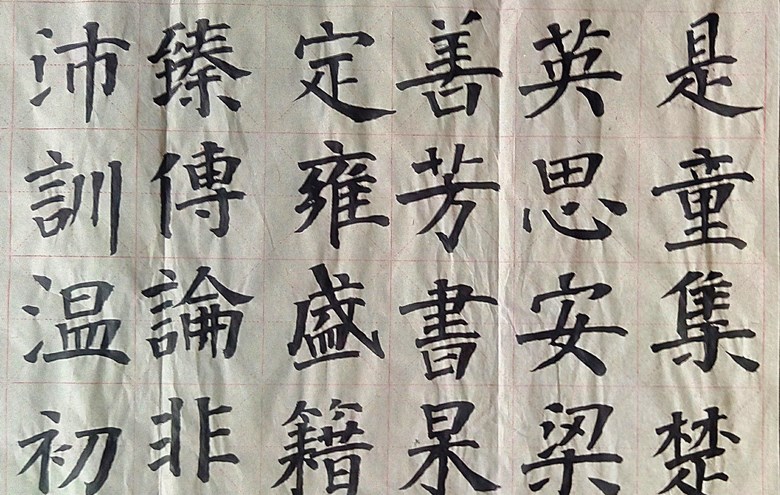 是童集楚
英思安梁
善芳書杲
定雍盛籍
臻傳論非
沛訓温初